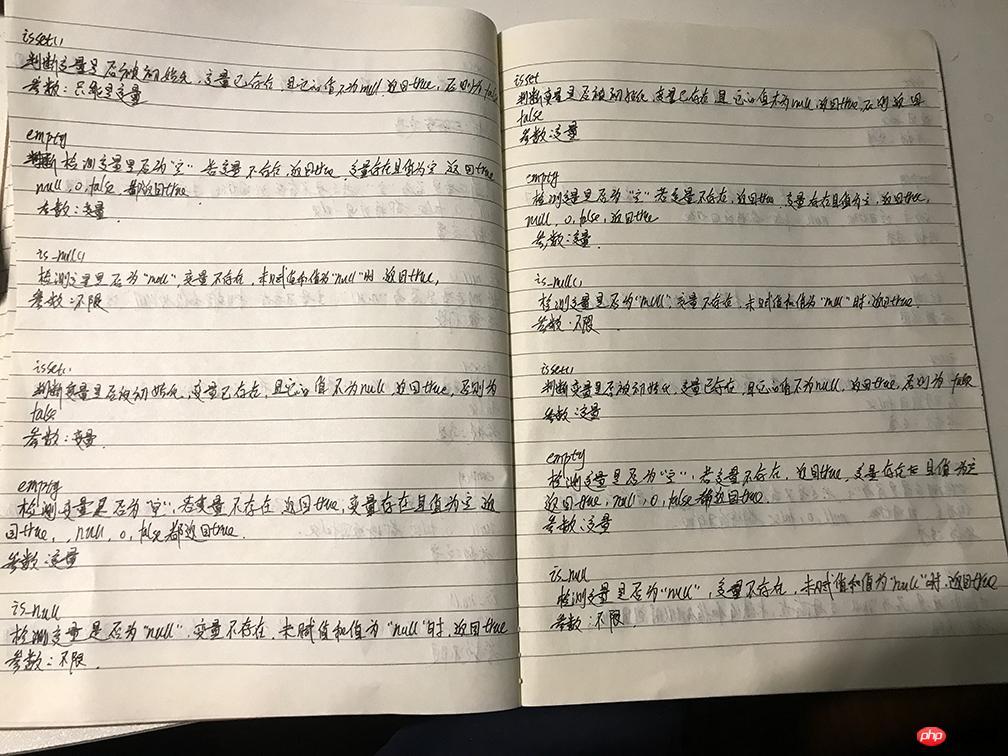 isset()
判断变量是否被初始化，变量已存在，且它的值不为null，返回true，否则为false
参数：只能是变量
empty
检测变量是否为"空"，若变量不存在，返回true，变量存在且值为空，返回true
null，0，false，都返回true.
参数：变量.
is_null()
检测变量是否为"null"，变量不存在，未赋值和值为"null"时，返回true，
参数：不限
isset()
判断变量是否被初始化，变量已存在，且它的值不为null，返回true，否则为
false.
参数：变量.
empty
检测变量是否为"空"，若变量不存在，返回true，变量存在且值为空，返
回true，，null，0，false都返回true.
参数：变量
is_null
检测变量是否为"null"，变量不存在，未赋值和值为"null"时，返回true
参数：不限.
isset
判断变量是否被初始化，变量已存在且它的值不为null，返回true，否则返回
false
参数：变量
empty
检测变量是否为"空"，若变量不存在，返回true，变量存在且值为空，返回true，
null，0，false，返回true
参数：变量.
is_null()
检测变量是否为"null"，变量不存在，未赋值和值为"null"时，返回true.
参数：不限.
isset()
判断变量是否被初始化，变量已存在，且它的值不为null，返回true，否则为false
参数：变量
empty
检测变量是否为"空"，若变量不存在，返回true，变量存在且值为空
返回true，null，0，false都返回true
参数：变量
is_null
检测变量是否为"null"，变量不存在，未赋值和值为"null"时，返回true
参数：不限.
php